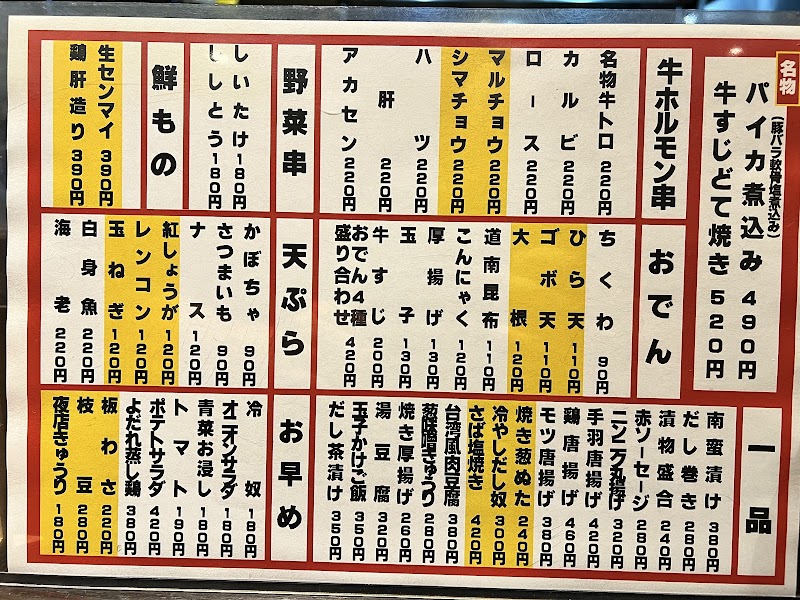 名物
パイカ煮込み 490円
(豚バラ軟骨塩煮込み)
牛すじどて焼き 520円
牛ホルモン串
名物牛トロ 220円
カルビ 220円
ロース 220円
マルチョウ 220円
シマチョウ 220円
ハツ 220円
肝 220円
アカセン 220円
野菜串
しいたけ 180円
ししとう 180円
鮮もの
生センマイ 390円
鶏肝造り 390円
おでん
ちくわ 90円
ひら天 110円
ゴボ天 110円
大根 120円
道南昆布 110円
こんにゃく 120円
厚揚げ 130円
玉子 130円
牛すじ 200円
おでん4種盛り合わせ 420円
天ぷら
かぼちゃ 90円
さつまいも 90円
ナス 120円
紅しょうが 120円
レンコン 120円
玉ねぎ 120円
白身魚 220円
海老 220円
一品
南蛮漬け 380円
だし巻き 280円
漬物盛合 240円
赤ソーセージ 280円
ニンニク丸揚げ 320円
手羽唐揚げ 420円
鶏唐揚げ 460円
モツ唐揚げ 380円
焼き葱ぬた 240円
冷やしだし奴 300円
さば塩焼き 420円
台湾風肉豆腐 380円
葱味噌きゅうり 280円
焼き厚揚げ 260円
湯豆腐 320円
玉子かけご飯 350円
だし茶漬け 350円
お早め
冷奴 180円
オニオンサラダ 180円
青菜お浸し 180円
トマト 190円
ポテトサラダ 420円
よだれ蒸し鶏 380円
板わさ 220円
枝豆 280円
夜店きゅうり 180円